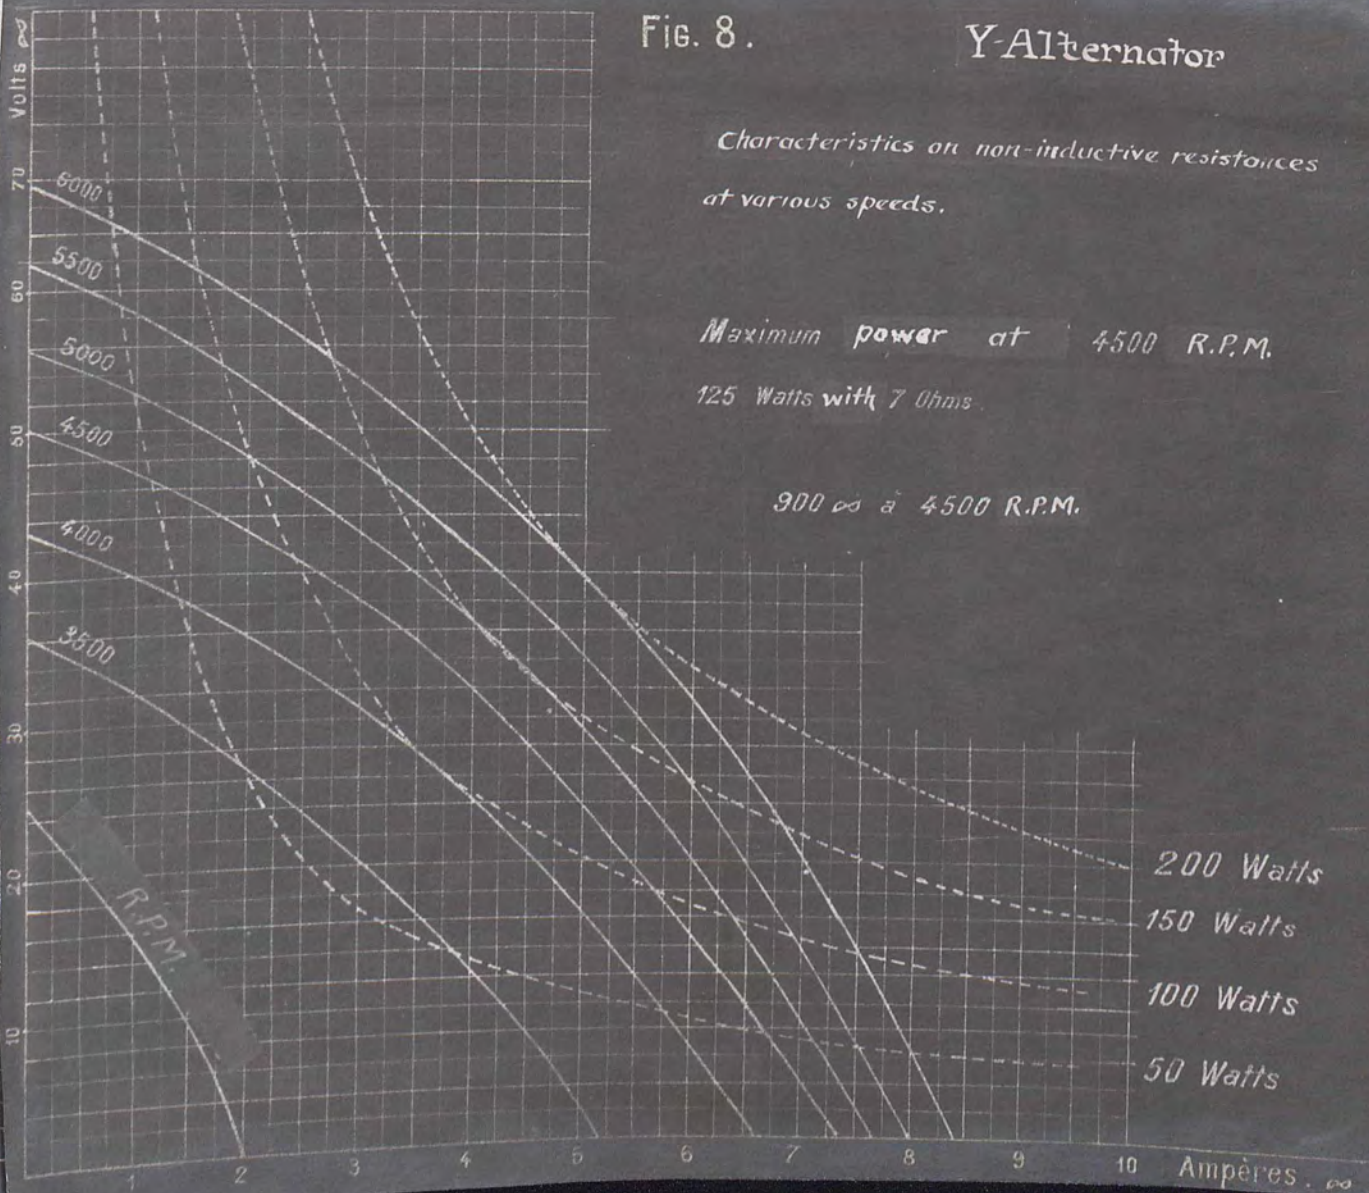 Fig. 8.
Y-Alternator
Characteristics on non-inductive resistances
at various speeds.
Maximum power at 4500 R.P.M.
125 Watts with 7 Ohms.
900 ∞ à 4500 R.P.M.
Volts ∞
70
60
50
40
30
20
10
6000
5500
5000
4500
4000
3500
R.P.M.
200 Watts
150 Watts
100 Watts
50 Watts
1 2 3 4 5 6 7 8 9 10 Ampères. ∞